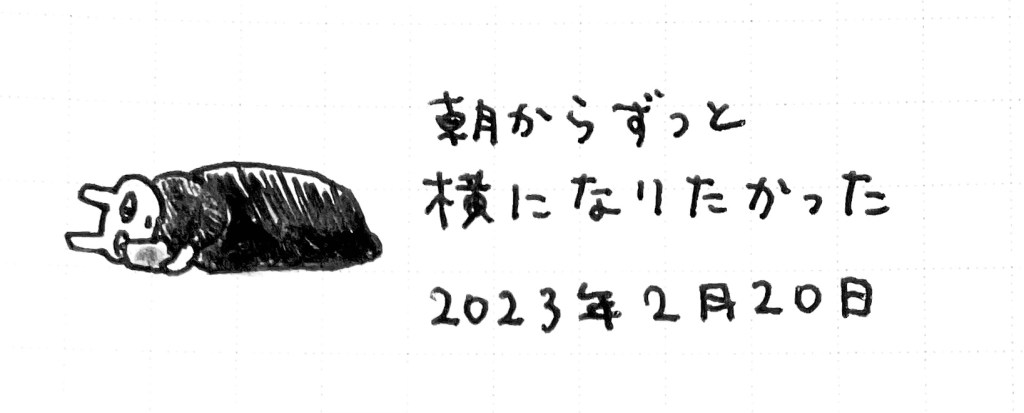 朝からずっと
横になりたかった
2023年2月20日